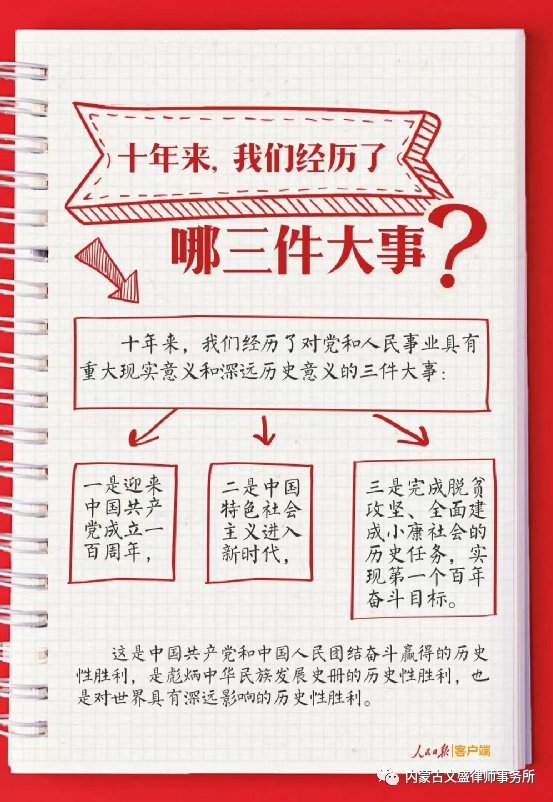 十年来，我们经历了
哪三件大事？
十年来，我们经历了对党和人民事业具有
重大现实意义和深远历史意义的三件大事：
一是迎来
中国共产
党成立一
百周年，
二是中国
特色社会
主义进入
新时代，
三是完成脱贫
攻坚、全面建
成小康社会的
历史任务，实
现第一个百年
奋斗目标。
这是中国共产党和中国人民团结奋斗赢得的历史
性胜利，是彪炳中华民族发展史册的历史性胜利，也
是对世界具有深远影响的历史性胜利。
人民日报 客户端
内蒙古文盛律师事务所